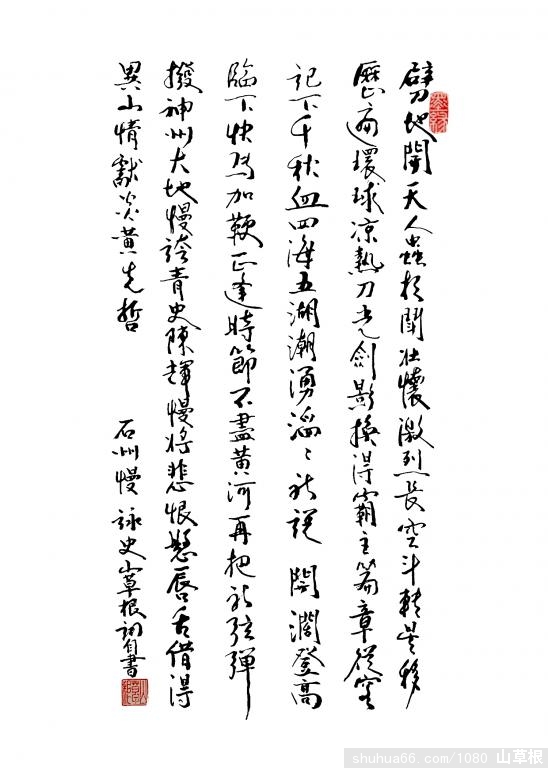 劈地開天人蟲於鬪壯懷激烈長空斗轉星移
歷遍環球凉熱刀光劍影換得霸主篇章從容
記下千秋血四海五湖潮湧滔〻新說 開闊登高
臨下快馬加鞭正逢時節不盡黃河再把新弦彈
撥神州大地慢誇青史陳輝慢將悲恨懸唇舌借得
異山情獻炎黃先哲
石州慢 詠史 山草根詞自書
shuhua66.com/1080 山草根